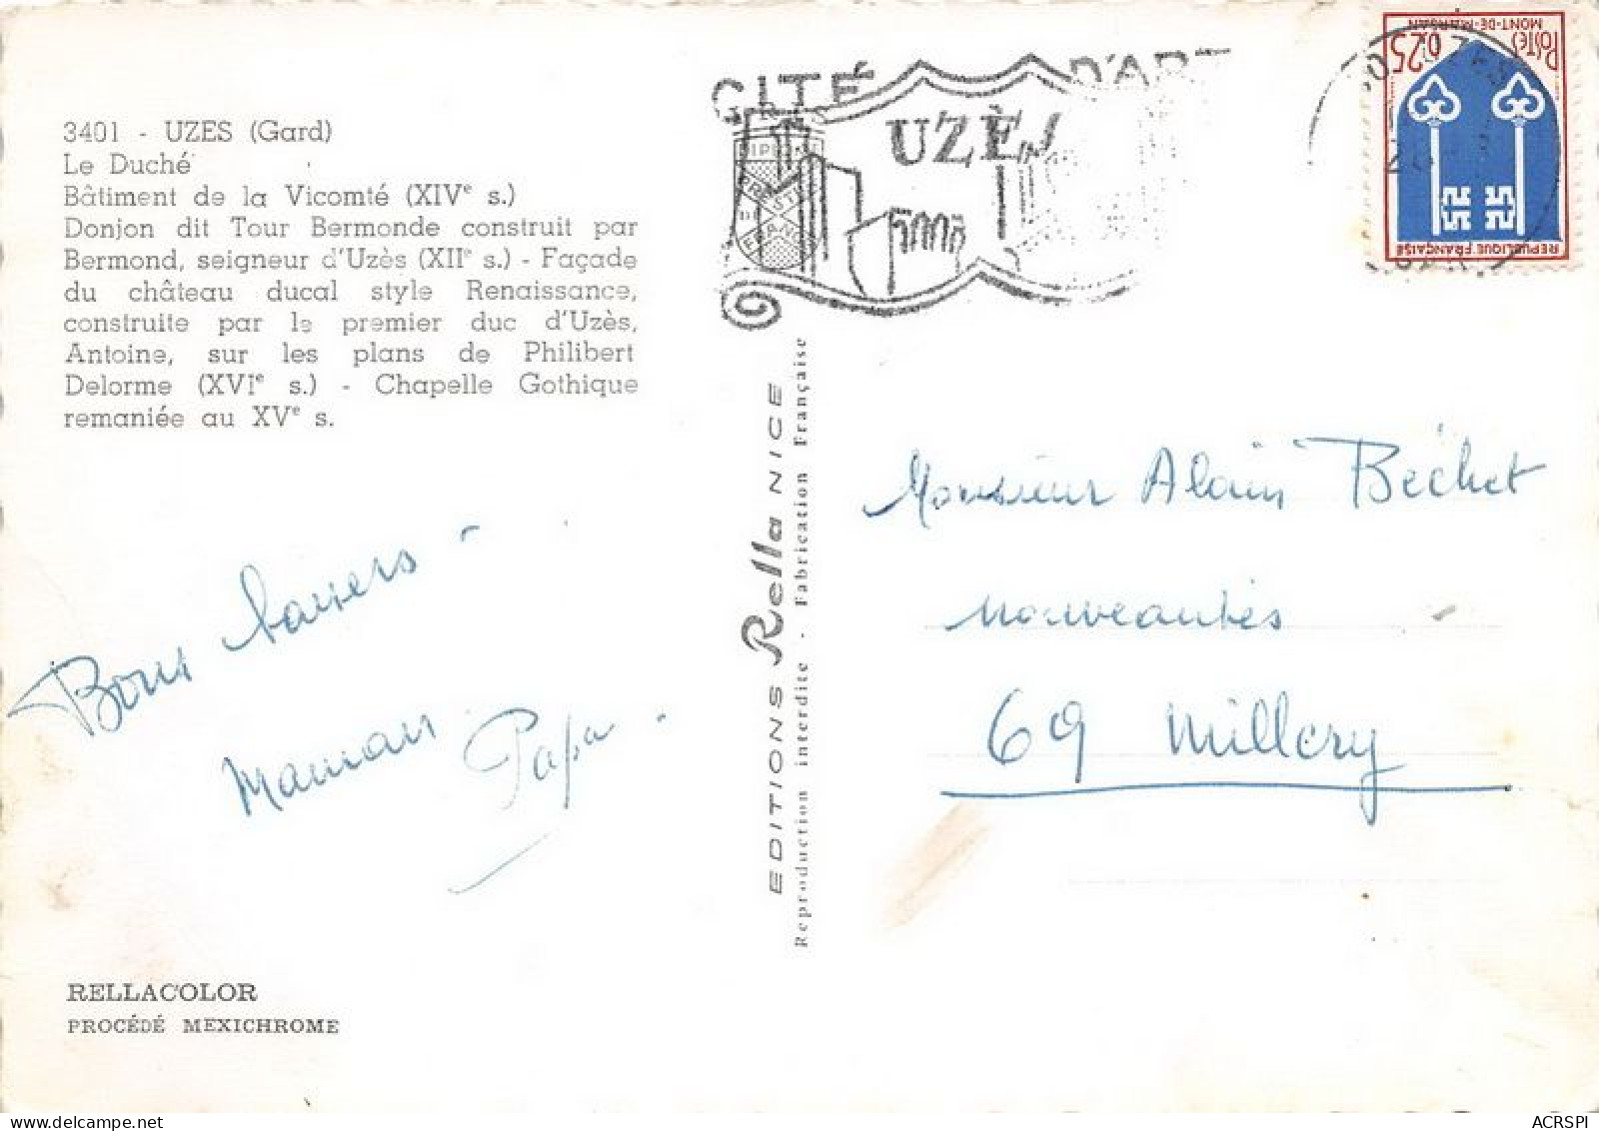 3401 - UZES (Gard)
Le Duché
Bâtiment de la Vicomté (XIVe s.)
Donjon dit Tour Bermonde construit par
Bermond, seigneur d'Uzès (XIIe s.) - Façade
du château ducal style Renaissance,
construite par le premier duc d'Uzès,
Antoine, sur les plans de Philibert
Delorme (XVIe s.) - Chapelle Gothique
remaniée au XVe s.
Bons baisers -
Maman Papa -
RELLACOLOR
PROCÉDÉ MEXICHROME
EDITIONS Rella NICE
Reproduction interdite - Fabrication Française
CITÉ D'ART
UZÈS
DIPLOME
PRESTIGE
DE
FRANCE
MONT-DE-MARSAN
POSTES
0,25
REPUBLIQUE FRANÇAISE
Monsieur Alain Bechet
nouveautés
69 Millery
ACRSPI